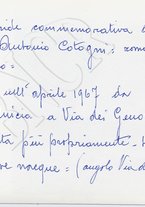 commemorativa
Antonio Cotogni: roma
o =
nell'aprile 1967 da
nicia a Via dei Geno
ta più propriamente -
re nacque = (angolo Via de